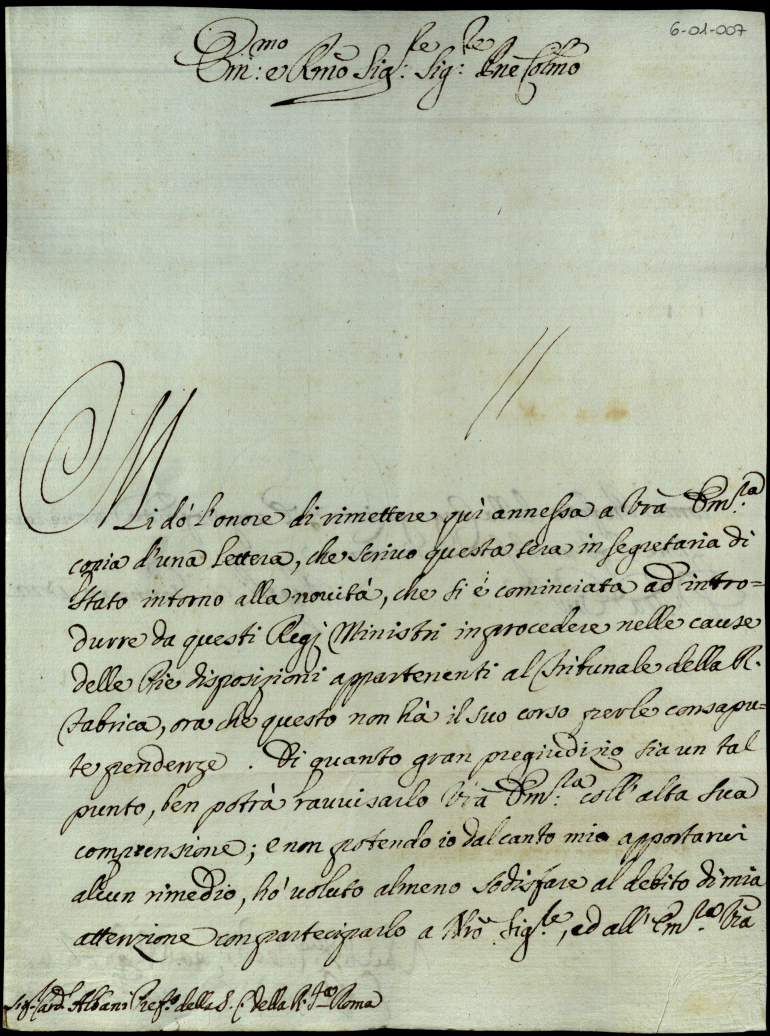 6-01-007
Em:mo e Rmo Sig:re Sig:re Pne Colmo
Mi dò l'onore di rimettere quì annessa a Vrã Em:za
copia d'una lettera, che scrivo questa sera in segretaria di
Stato intorno alla novità, che si è cominciata ad intro=
durre da questi Regj Ministri in procedere nelle cause
delle Pie disposizioni appartenenti al Tribunale della R.
Fabrica, ora che questo non hà il suo corso per le consapu=
te pendenze. Di quanto gran pregiudizio sia un tal
punto, ben potrà ravvisarlo Vrã Em:za coll'alta sua
comprensione; e non potendo io dal canto mio apportarvi
alcun rimedio, hò voluto almeno sodisfare al debito di mia
attenzione con parteciparlo a Nrõ Sig:re, ed all'Em:za Vrã
Sig:r Card: Albani Pref:o della S. C. della R. Fca Roma